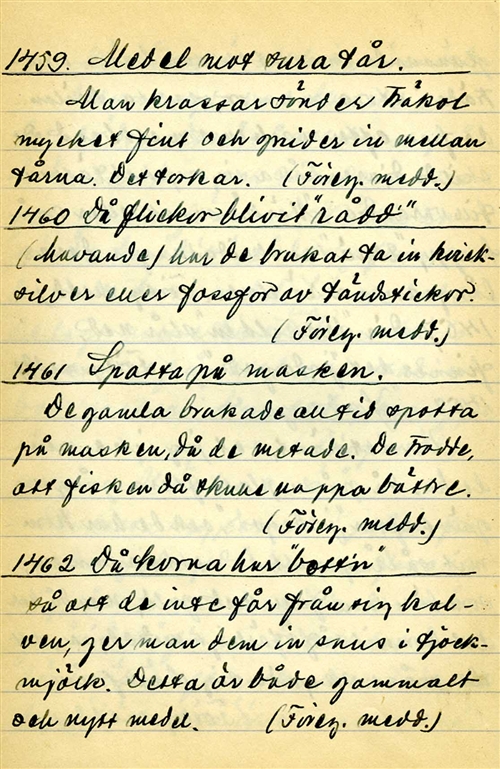 1459. Medel mot sura tår.
Man krassar sönder träkol
mycket fint och gnider in mellan
tårna. Det torkar. (Föreg. medd.)
1460 Då flickor blivit "rådd'"
(havande) har de brukat ta in kvick-
silver eller fossfor av tändstickor.
(Föreg. medd.)
1461 Spotta på masken.
De gamla brukade alltid spotta
på masken, då de metade. De trodde,
att fisken då skulle nappa bättre.
(Föreg. medd.)
1462 Då korna har "bottn"
så att de inte får från sig kal-
ven, ger man dem in snus i tjock-
mjölk. Detta är både gammalt
och nytt medel. (Föreg. medd.)